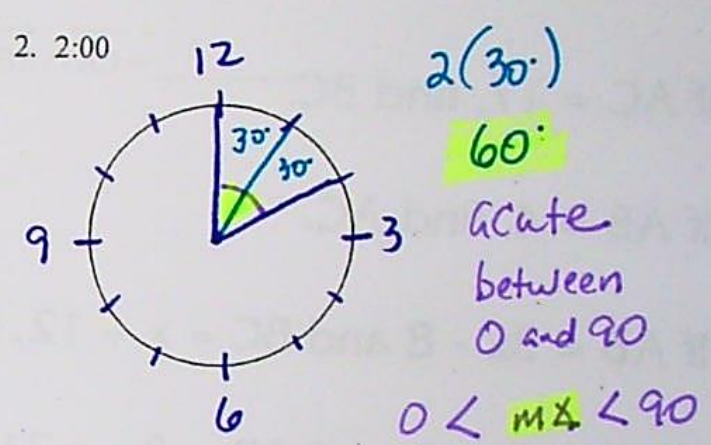 2. 2:00
12
2(30°)
30°
30°
60°
9
3
acute
between
0 and 90
6
0 < m∡ < 90